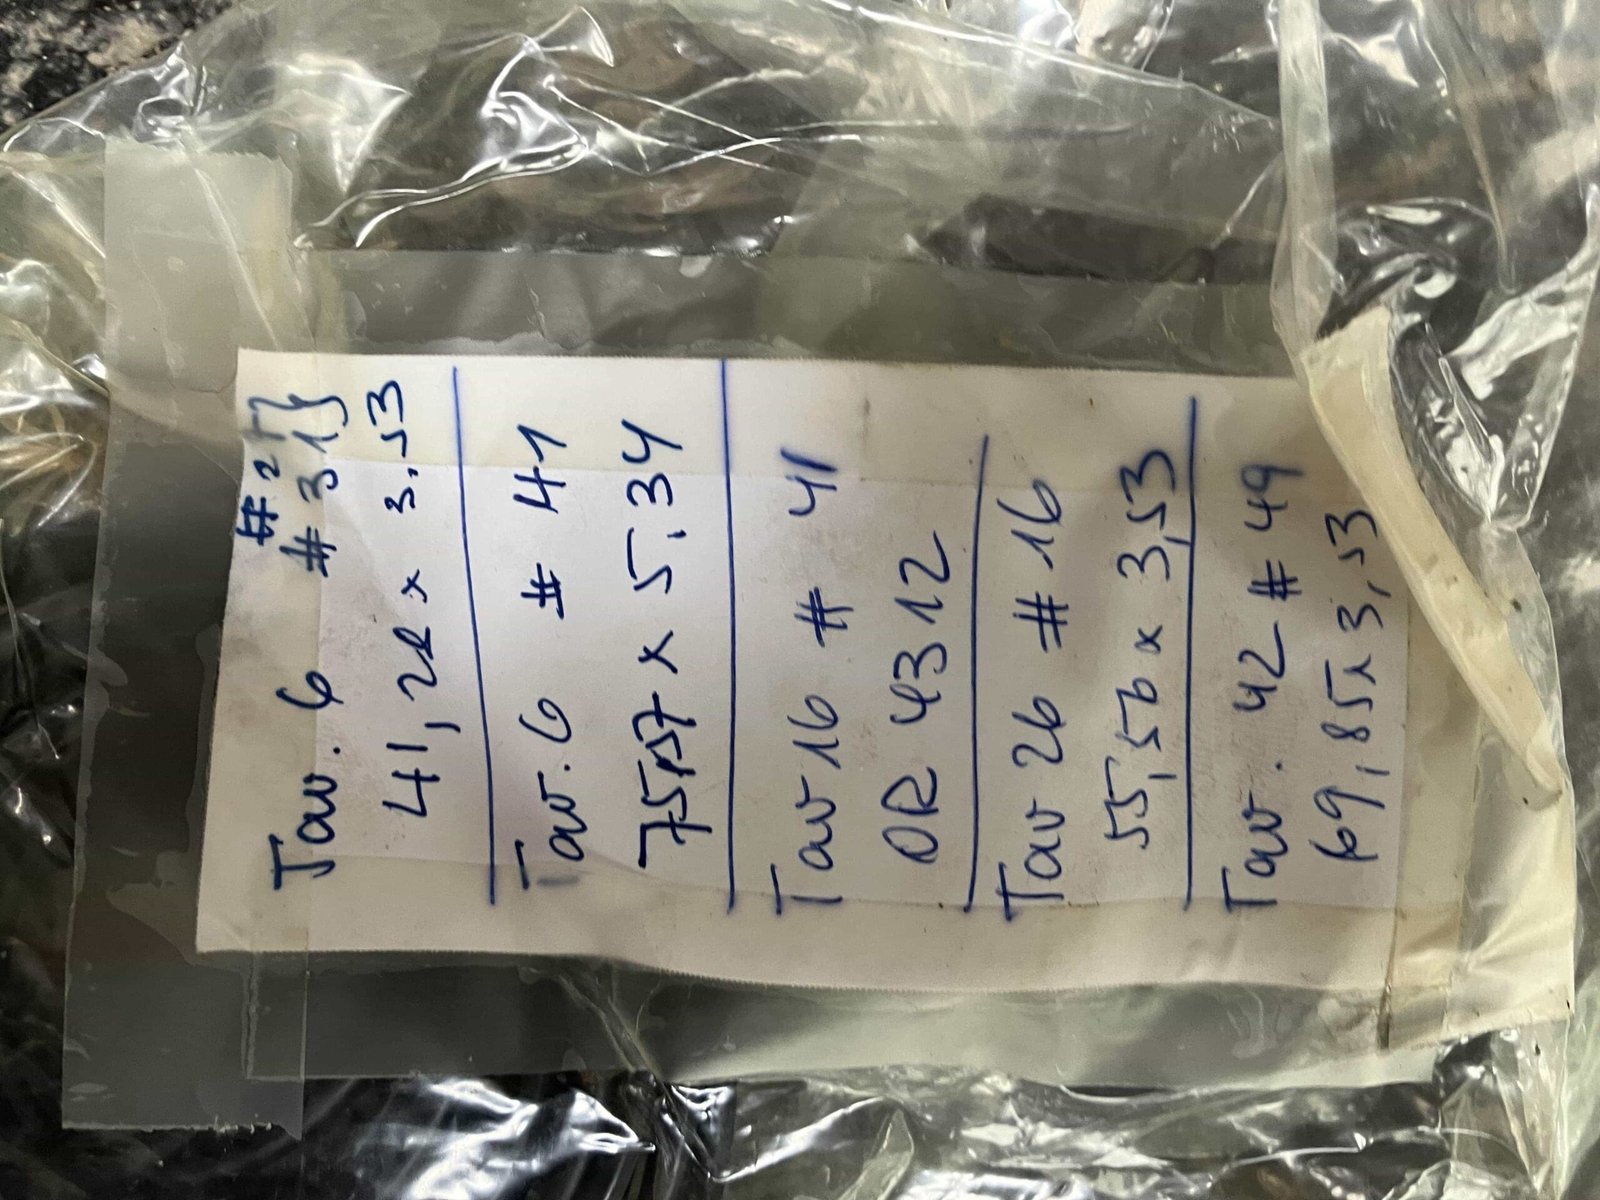 #27}
Tav. 6 #31}
41,28 x 3.53
Tav. 6 # 41
75,57 x 5,34
Tav 16 # 41
OR 4312
Tav 26 # 16
55,56 x 3,53
Tav. 42 # 49
69,85x3,53